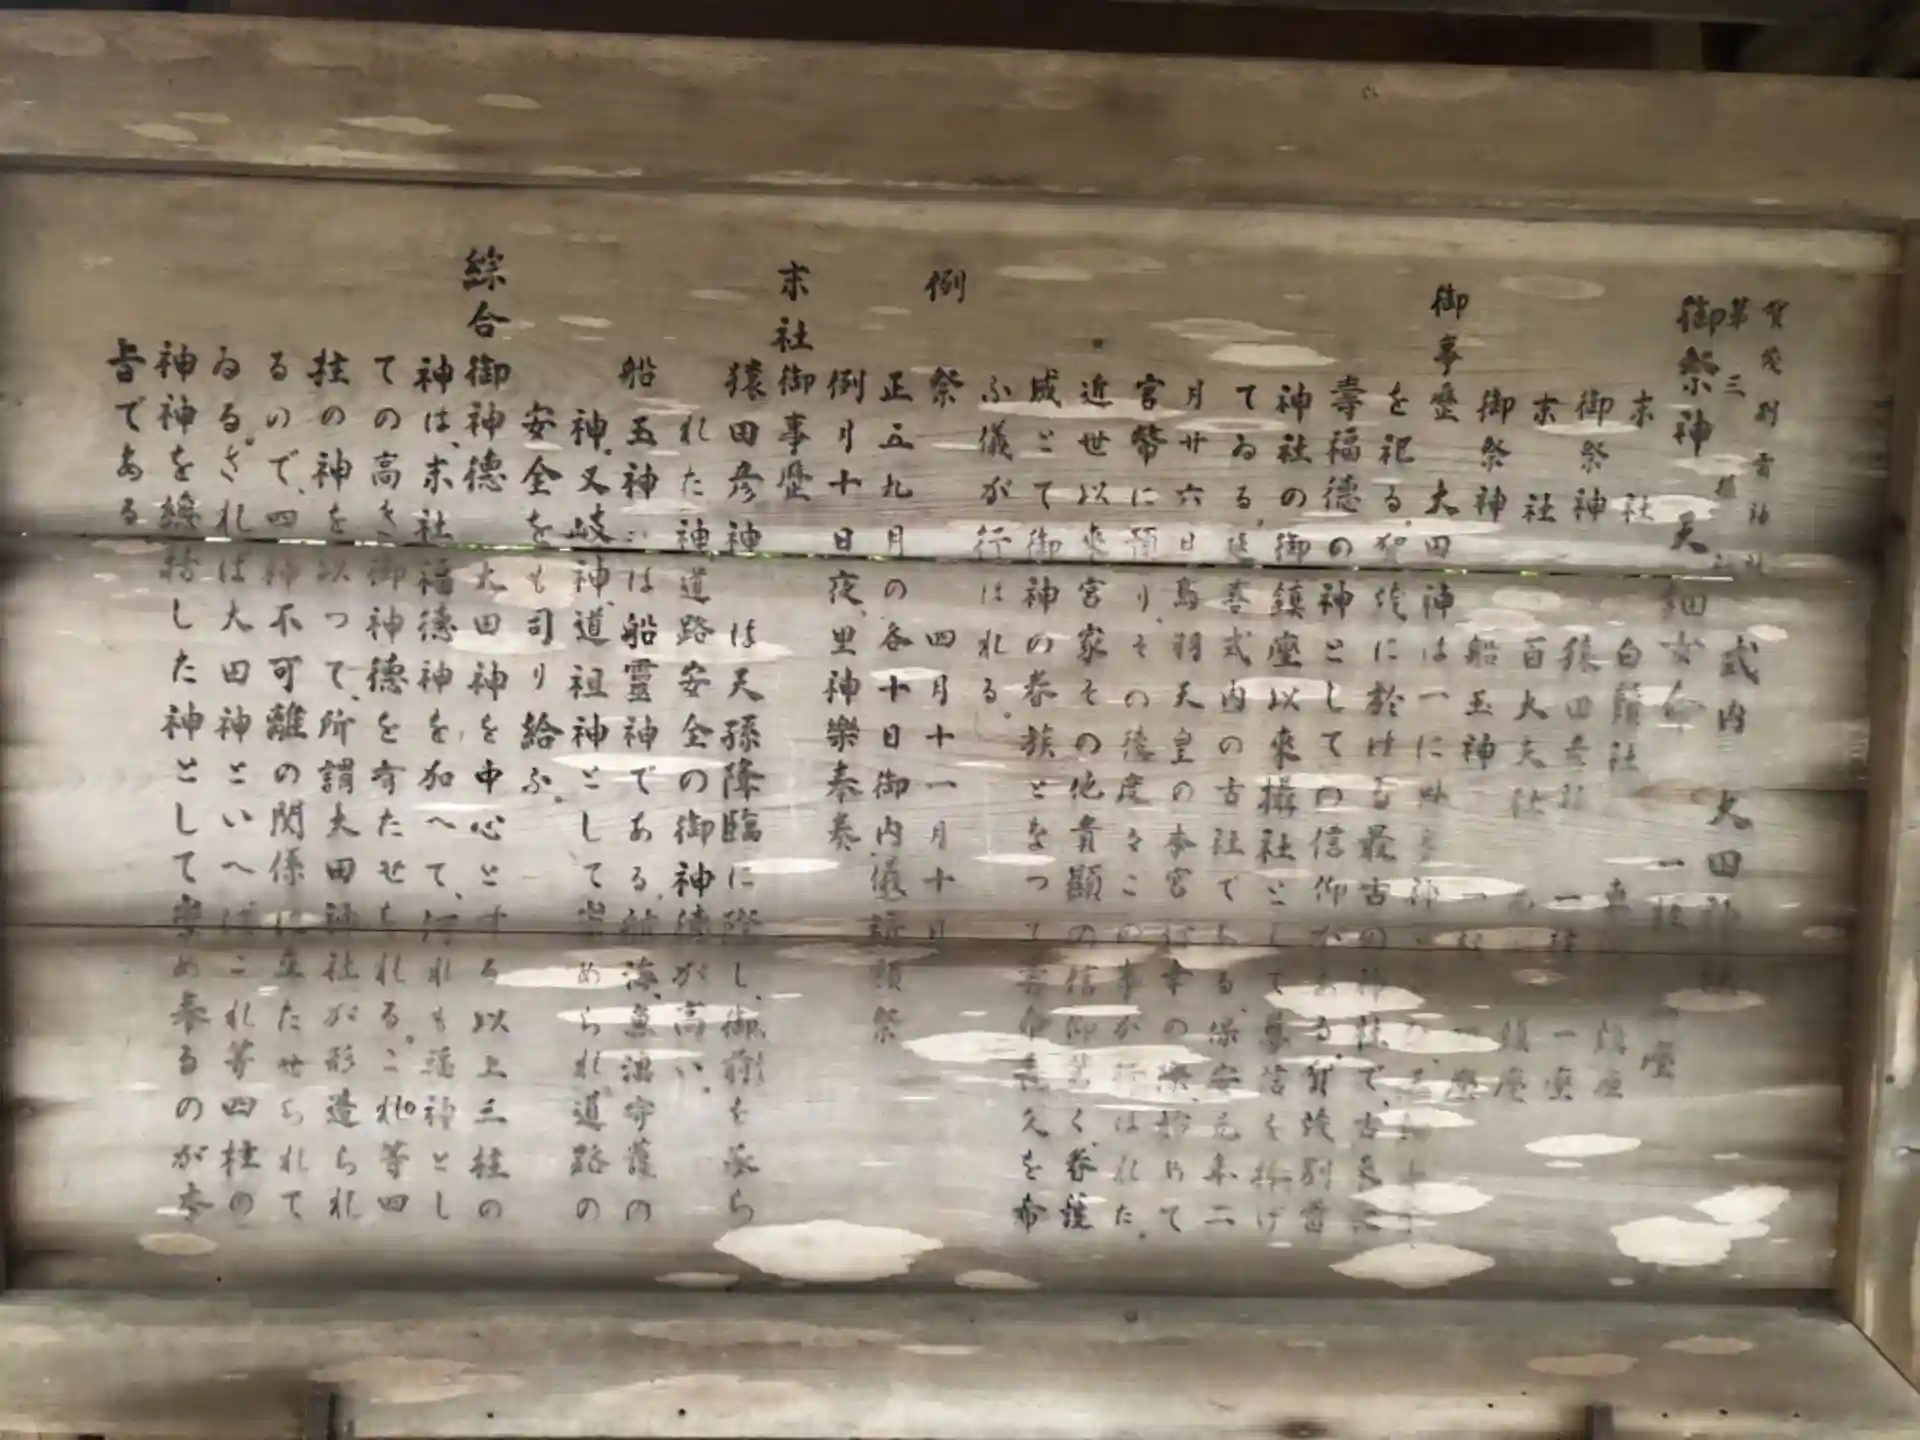 賀茂別雷神社
第三摂社
式内 大田神社
御祭神 天鈿女命 一柱 一座
末社 白鬚社
御祭神 猿田彦神 一柱 一座
末社 百大夫社 鎮座
御祭神 船玉神 一柱 一座
御事歴 大田神は一に
を祀る。賀茂に於ける最古の神社で、古來
壽福德の神としての信仰がある。賀茂別雷
神社の御鎮座以來攝社として
てゐる。延喜式内の古社である。保安元年二
月廿六日鳥羽天皇の本宮行幸の際、始めて
宮幣に預り、その後度々この事が行はれた。
近世以來宮家その他貴顯の信仰篤く、眷護
咸とて御神の眷族となつて
ふ儀が行はれる。
例祭 四月十一月十日
正五九月の各十日御内儀 祭
例月十日夜、里神樂奉奏
末社御事歴
猿田彦神 は天孫降臨に際し、御前を
れた神、道路安全の御神德が高い。
船玉神 は船靈神である、航海、漁撈守護の
神、又岐神、道祖神として崇められ道路の
安全をも司り給ふ。
綜合御神德 大田神を中心とする以上三柱の
神は、末社福德神を加へて、何れも 神とし
ての高き御神德を有たせられる。これ等四
柱の神を以つて、所謂大田神社が形造られ
るので、四神不可離の関係に立たせられて
ゐる。されば大田神といへばこれ等四柱の
神神を總括した神として崇め奉るのが本
旨である